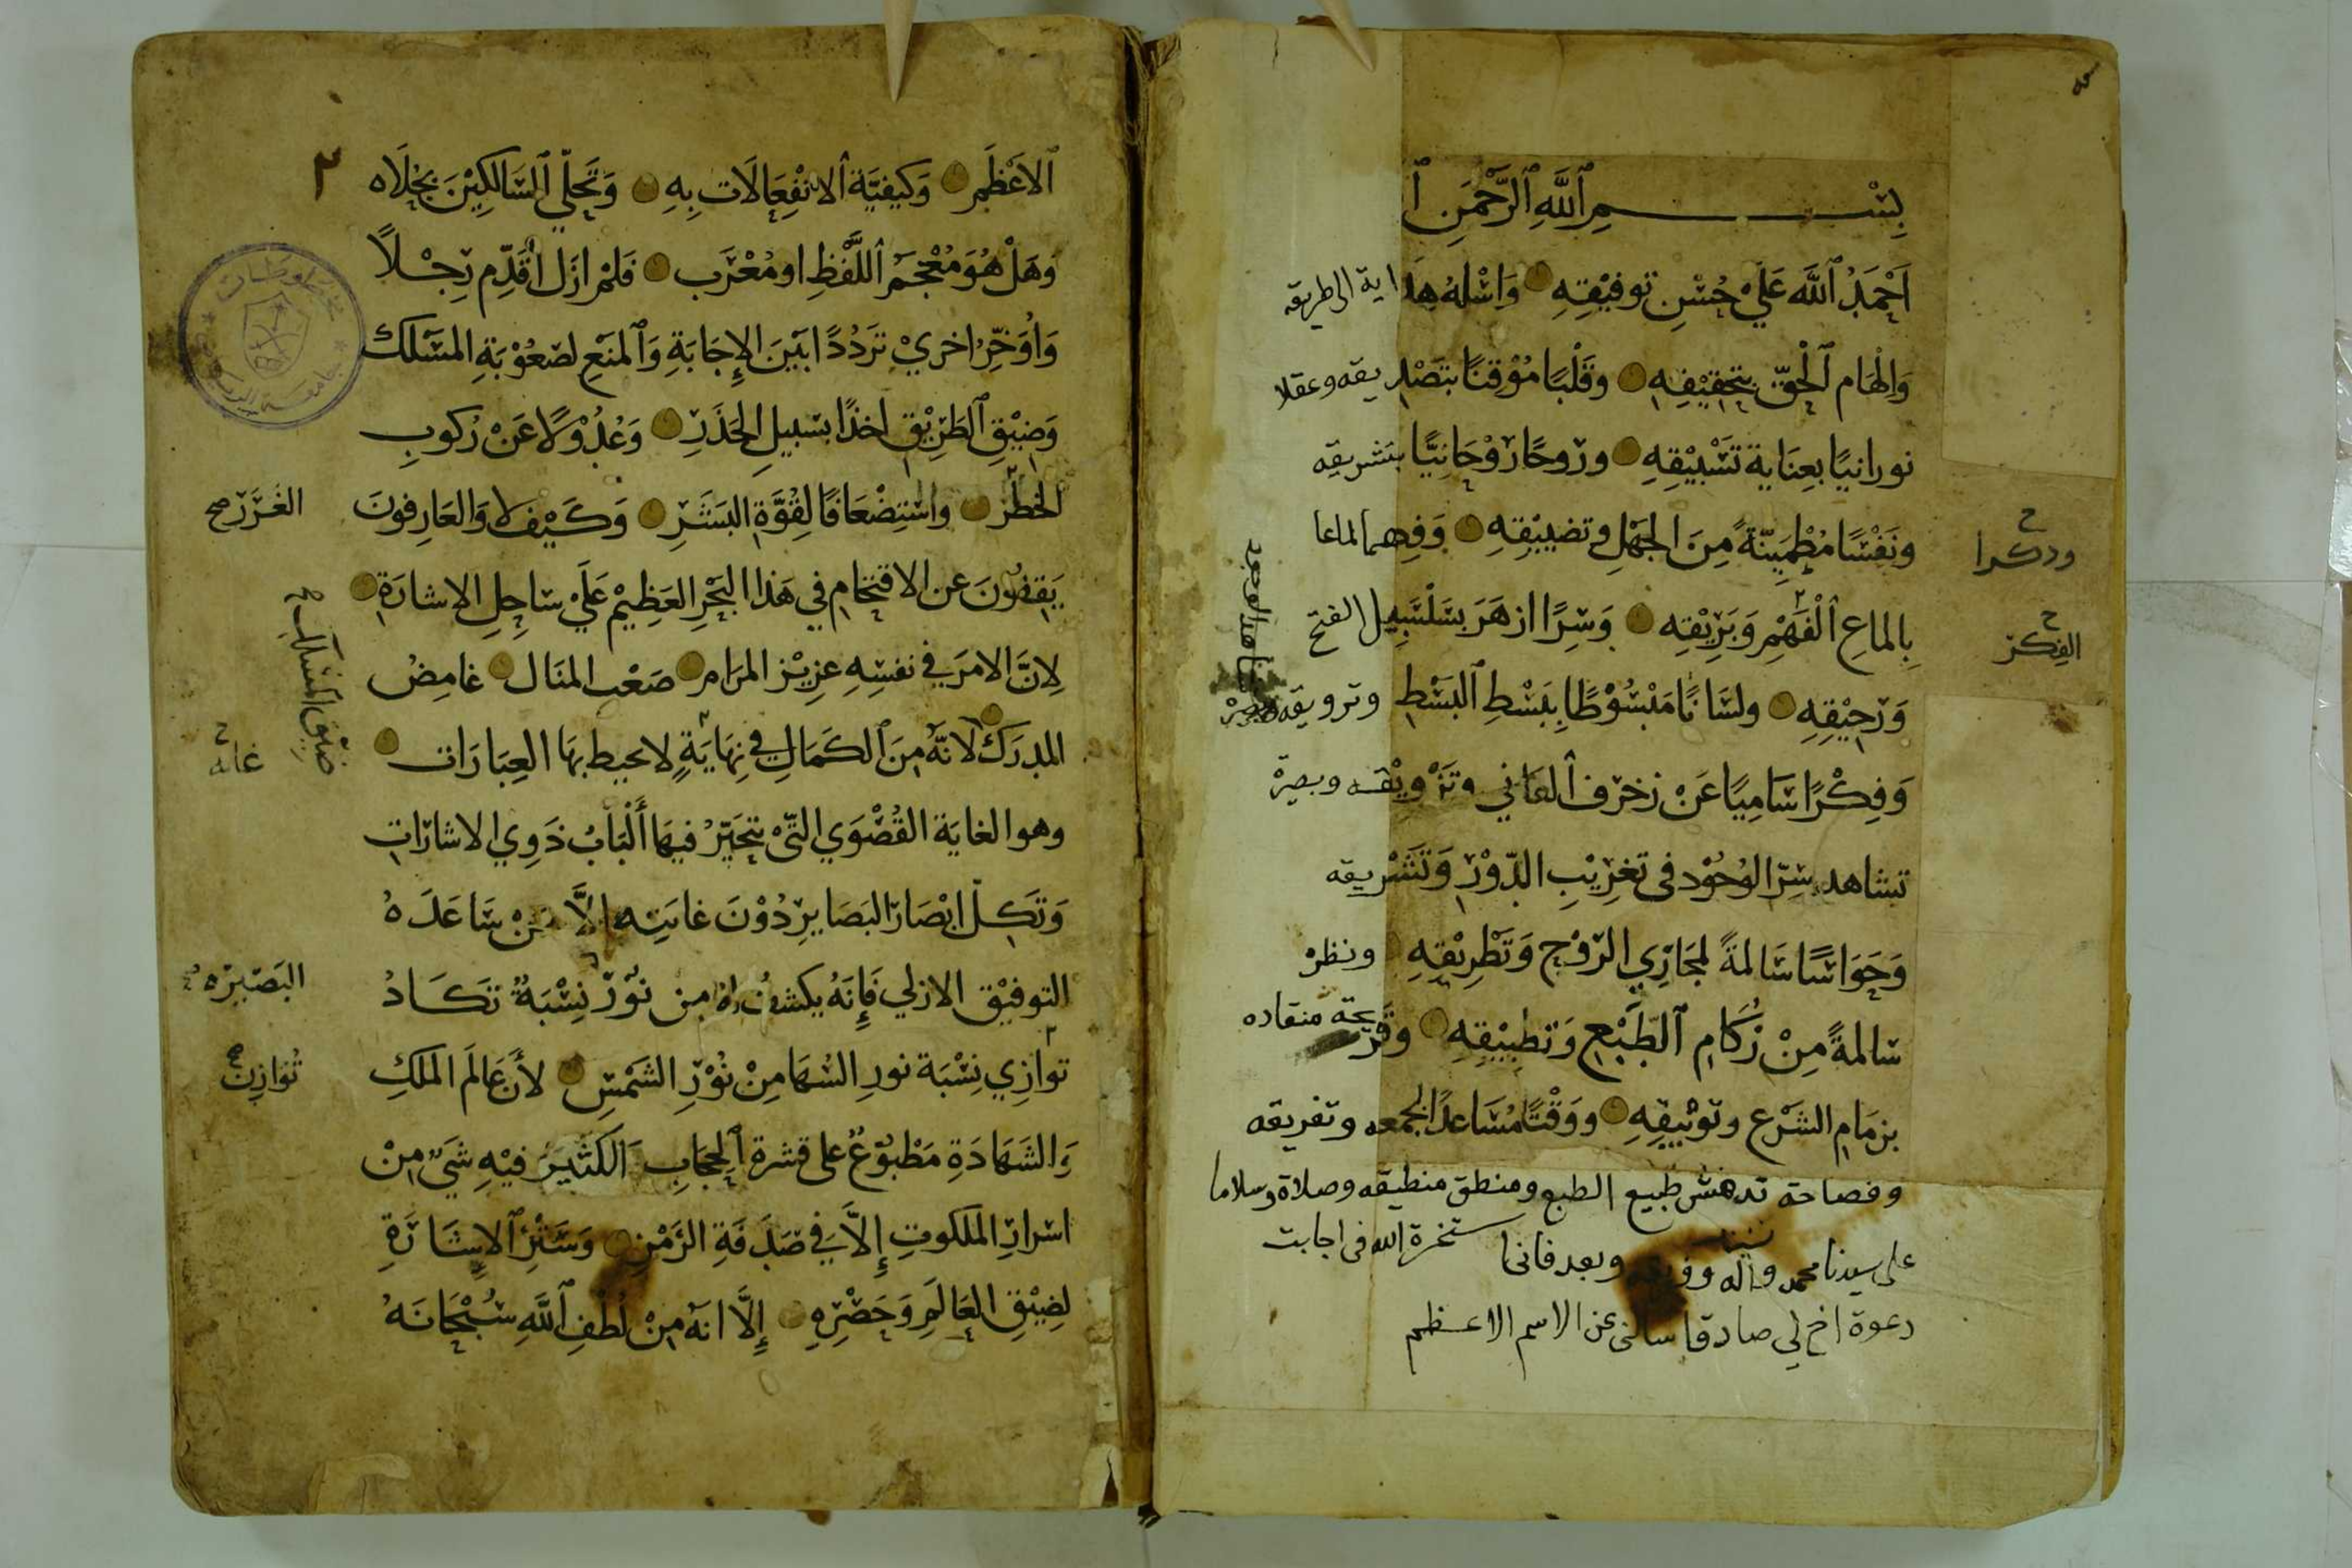 بِسْمِ ٱللَّهِ ٱلرَّحْمَنِ ٱ
اَحْمَدُ ٱللَّه عَلَيْ حُسْنِ توفيْقِهِ وَاسْلهُ هِدَاية الى طريقه
وَالْهَام ٱلْحَقّ بتحقِيْقِهِ وقَلْبًا مُوْقنًا بتَصْديقه وعقلا
نورانيًا بعِنَاية تَشْبيْقِهِ وروحًا رَوْحَانيًّا بتشريقه
ونَفْسًا مُطْمَيِنّةً مِنَ الجَهْلِ وتضييْقِهِ وَفِهما لماعا
ودكرا
بِالماعِ ٱلْفَهْمِ وَبَرِيْقِه وَسِرًا ازهَرَ بسَلْسَبِيل الفتح
الفكر
وَرَحِيْقِهِ ولسَانًا مَبْسُوْطًا بِبَسْطِ ٱلبَسْطِ وترويقه
وَفِكْرًا سَامِيًا عَنْ زخرف ٱلفَاني وتَزْويْقه وبصيرة
تشاهد سِرّ الوُجُوْد فى تغرِيْبِ الدّوْر وَتَشْريقه
وَحَوَاسًا سَالمةً لمجَارِي الرّوْح وَتَطْرِيْقِهِ ونظرة
سَالمةً مِنْ زُكَامِ ٱلطَّبْعِ وَتطبِيْقِهِ وقريحة منقاده
بزمَامِ الشَرْع وتوثيْقِهِ ووَقْتًا مُسَاعدًا لجمعه وتفريقه
وفصاحة تدهش طبيع الطبع ومنطق منطيقه وصلاة وسلاما
على سيدنا محمد وآله وفريقه وبعد فانى استخرة الله فى اجابت
دعوة اخ لي صادقا سالنى عن الاسم الاعظم
٢
ٱلاَعْظَمِ وَكيفيَّة ٱلانْفِعَالَات بِهِ وَتَجَلّي ٱلسَّالكِيْنَ بجُلَاه
وَهَلْ هُوَ مُعْجَم ٱللَّفْظِ او مُعْرَب فَلمْ ازَل اُقَدِّم رِجْلاً
وَاُوَخِّرُ اخري تَرَدُدًا بَيْنَ الإِجَابَةِ وَٱلمنَعِ لصْعُوْبَةِ المَسْلك
وَضيْقِ ٱلطَرِيْقِ اخذًا بسَبيلِ الحَذَرِ وَعُدُوْلًا عَنْ رُكوبِ
الخطَر واسْتِضْعَافًا لقُوَّةِ البَشَرِ وَكَيْفَ لا وَالعَارِفونَ
الغَرَر صح
يَقفُوْنَ عن الاقتحَامِ في هَذا البَحْرِ العَظِيْم عَلَيْ سَاحِلِ الاشارَةِ
لِانَّ الامرَ في نفسِهِ عزِيْز المرَام صَعْب المنَال غامِضُ
ضيق المسالك
المدرَك لانّهُ مِنَ ٱلكَمَالِ في نِهَايَةٍ لا يحيط بهَا العِبَارَات
غاية
وهو الغايَة القُصْوَي التّيْ تتحَيّرُ فيهَا أَلْبَابُ ذَوِي الاشارَاتِ
وَتَكِلّ ابْصَار البَصَايرِ دُوْنَ غايَتِه الاَّ مَنْ سَاعَدَهُ
التوفيْق الازلي فَإِنَهُ يكشفُ له مِن نوْرٍ نِسْبَةً تَكَادُ
البَصَيرَه
توازِي نِسْبَة نورِ السُهَا مِنْ نُوْرِ الشَمْسِ لأَن عَالَم الملكِ
تُوَازِنَ
وَالشَهَادَةِ مَطْبُوْعٌ على قشرة ٱلحِجَابِ ٱلكَثِيْر فيْهِ شَيٌ مِنْ
اسْرارِ الملكوتِ إلاَّ في صَدَفَةِ الرَمْزِ وَسَتْرِ ٱلاِشَارَةِ
لضِيْقِ العَالَمِ وَحَصْرِهِ إِلَّا انّهُ مِنْ لُطْفِ ٱللَّهِ سُبْحَانَهُ